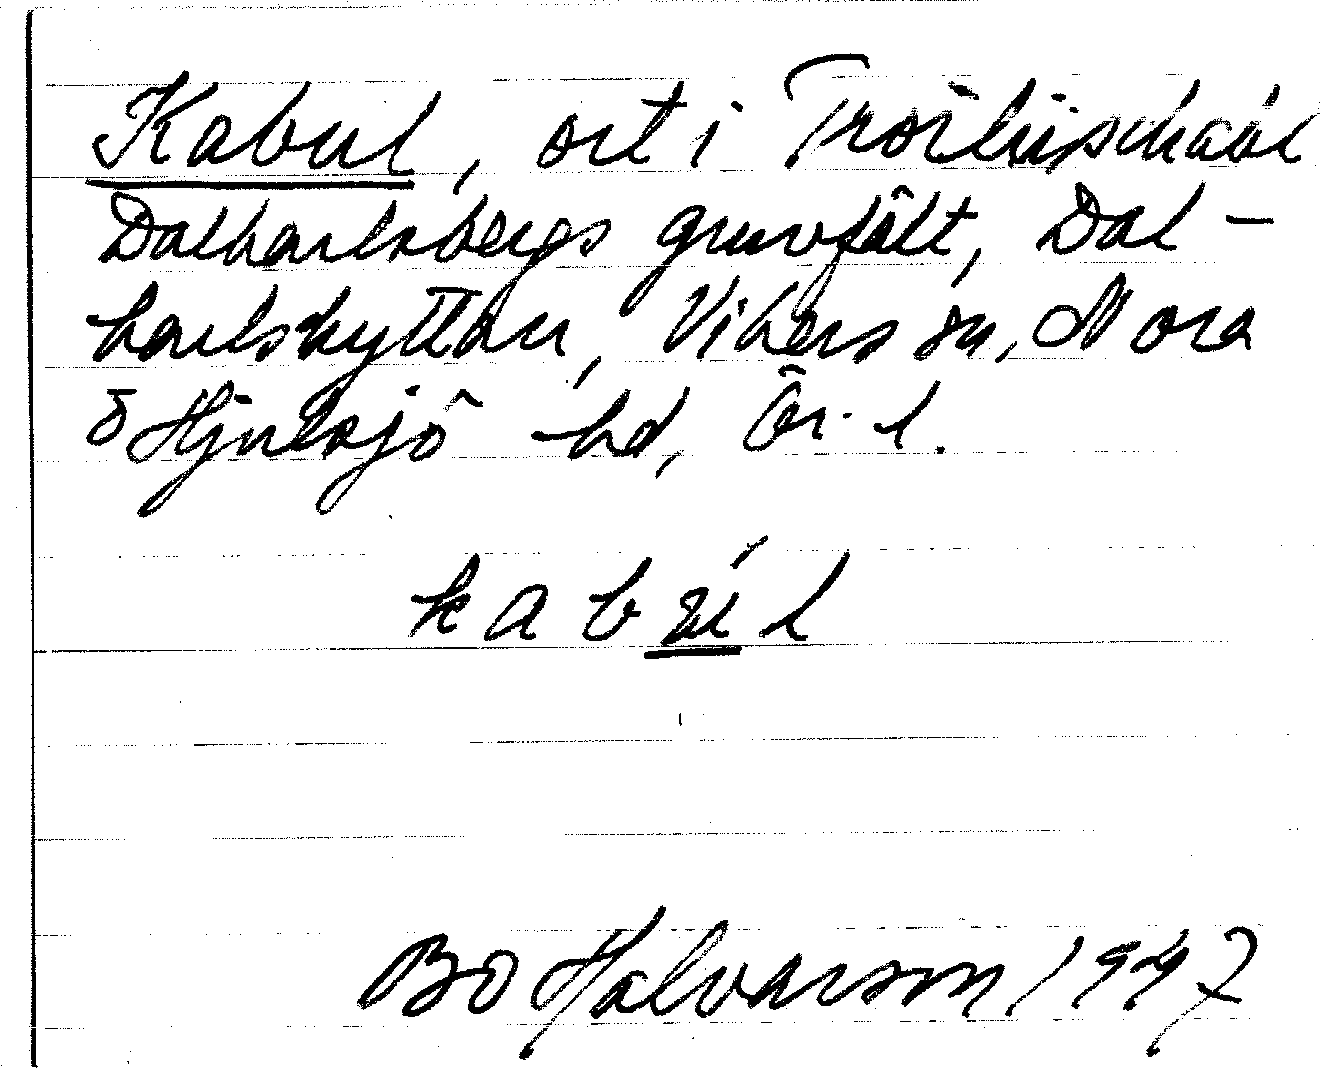 Kabul, ort i Troilisschakt
Dalkarlsbergs gruvfält, Dal-
karlshyttan, Vikers sn, Nora
& Hjulsjö hd, Ör. l.
kabúl
Bo Halvarson 1947